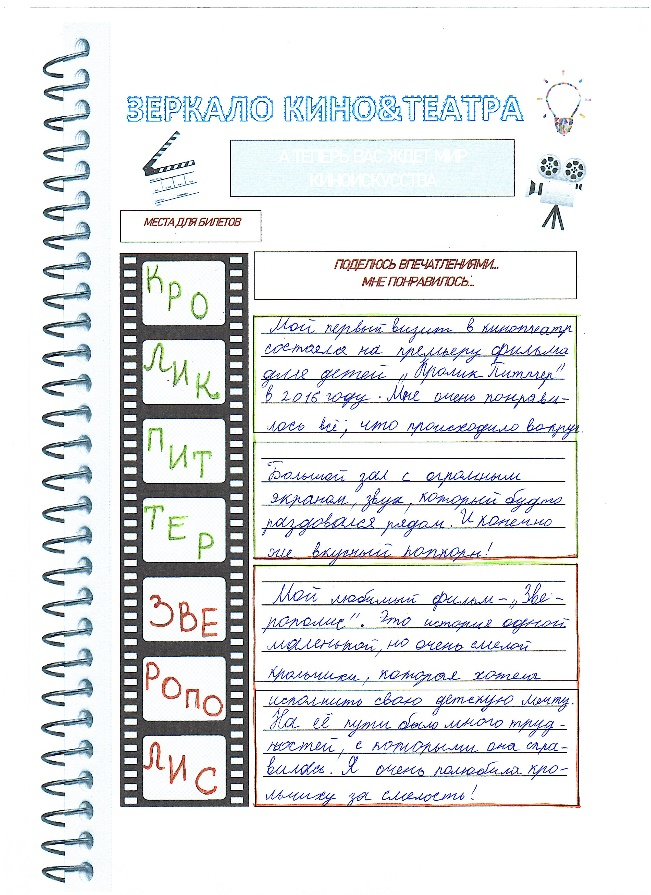 ЗЕРКАЛО КИНО&ТЕАТРА
А ТЕПЕРЬ ВАС ЖДЕТ МИР
КИНОИСКУССТВА
МЕСТА ДЛЯ БИЛЕТОВ
ПОДЕЛЮСЬ ВПЕЧАТЛЕНИЯМИ...
МНЕ ПОНРАВИЛОСЬ...
КРО
ЛИК
ПИТ
ТЕР
ЗВЕ
РОПО
ЛИС
Мой первый визит в кинотеатр
состоялся на премьеру фильма
для детей „Кролик Питтер"
в 2016 году. Мне очень понрави-
лось всё, что происходило вокруг.
Большой зал с огромным
экраном, звук, который будто
раздовался рядом. И конечно
же вкусный попкорн!
Мой любимый фильм – „Зве-
рополис". Это история одной
маленькой, но очень смелой
крольчихи, которая хотела
исполнить свою детскую мечту.
На её пути было много труд-
ностей, с которыми она спра-
вилась. Я очень полюбила кро-
льчиху за смелость!